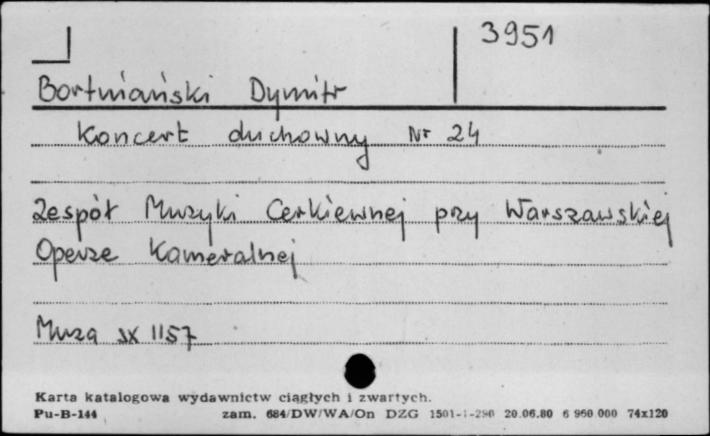 3951
Bortniański Dymitr
Koncert duchowny Nr 24
Zespół Muzyki Cerkiewnej przy Warszawskiej
Operze Kameralnej
Muza SX 1157
Karta katalogowa wydawnictw ciągłych i zwartych.
Pu-B-144 zam. 684/DW/WA/On DZG 1501-1-280 20.06.80 6 960 000 74x120